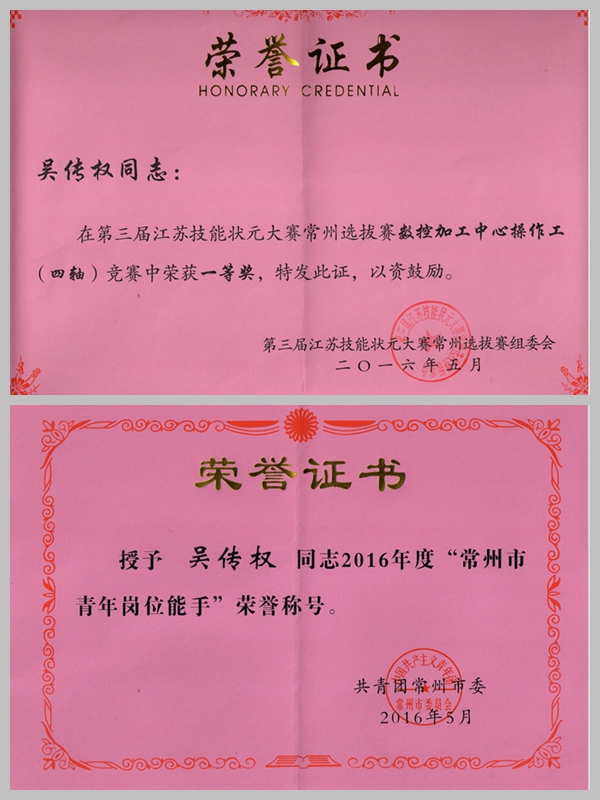 荣誉证书
HONORARY CREDENTIAL
吴传权同志：
在第三届江苏技能状元大赛常州选拔赛数控加工中心操作工
（四轴）竞赛中荣获一等奖，特发此证，以资鼓励。
第三届江苏技能状元大赛常州选拔赛组委会
二〇一六年五月
荣誉证书
授予 吴传权 同志2016年度“常州市
青年岗位能手”荣誉称号。
共青团常州市委
常州市委员会
2016年5月